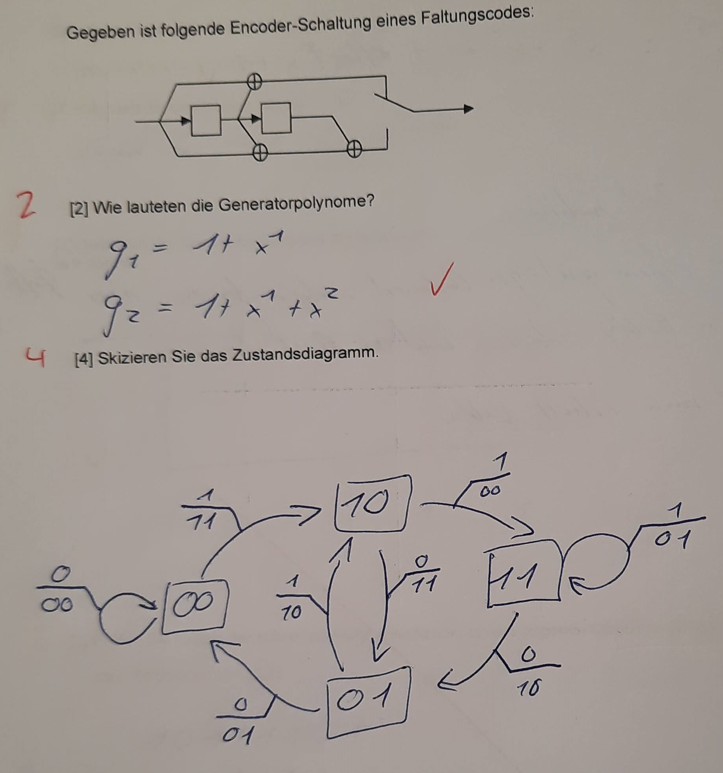 Gegeben ist folgende Encoder-Schaltung eines Faltungscodes:
2 [2] Wie lauteten die Generatorpolynome?
g₁ = 1 + x¹
g₂ = 1 + x¹ + x² ✓
4 [4] Skizieren Sie das Zustandsdiagramm.
1/11
10
1/00
1/01
0/00
00
1/10
0/11
11
0/01
01
0/10